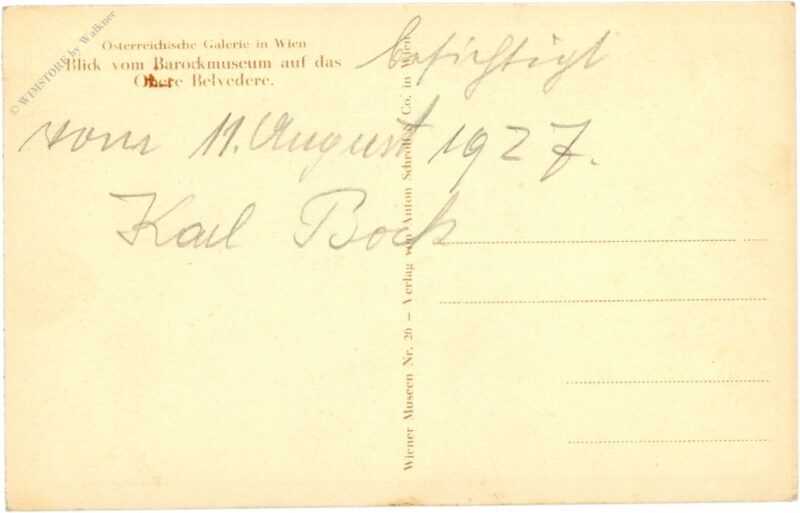 © WIMSTORE by Walkner
Österreichische Galerie in Wien
Blick vom Barockmuseum auf das
Obere Belvedere.
besichtigt
vom 11. August 1927.
Karl Bock
Wiener Museen Nr. 20 — Verlag von Anton Schroll & Co. in Wien